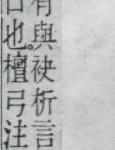 有與袂析言
也檀弓注